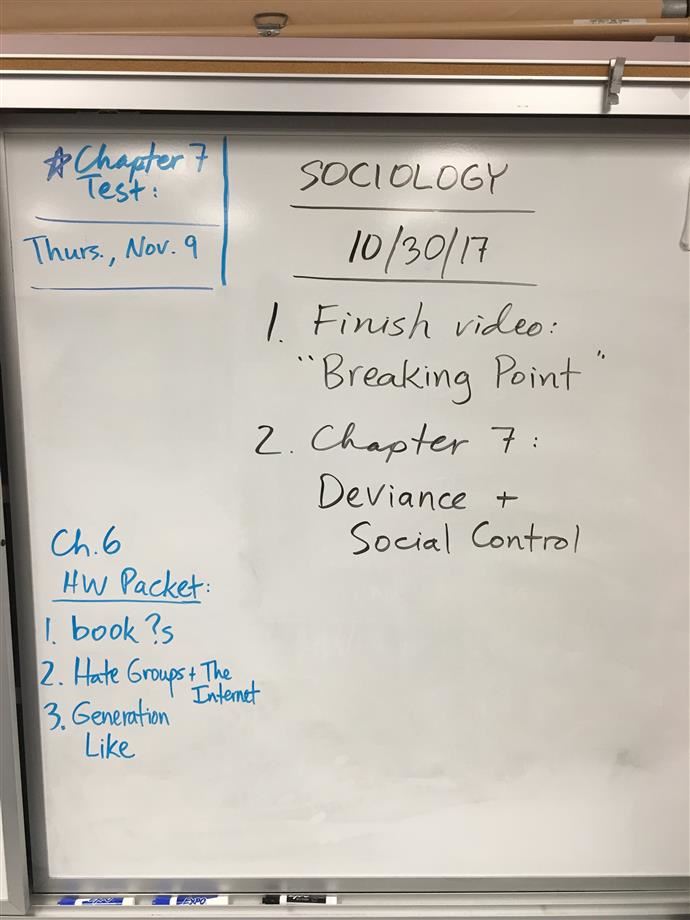 ☆Chapter 7
Test:
Thurs., Nov. 9
SOCIOLOGY
10/30/17
1. Finish video:
"Breaking Point"
2. Chapter 7:
Deviance +
Social Control
Ch.6
HW Packet:
1. book ?s
2. Hate Groups + The
Internet
3. Generation
Like
EXPO